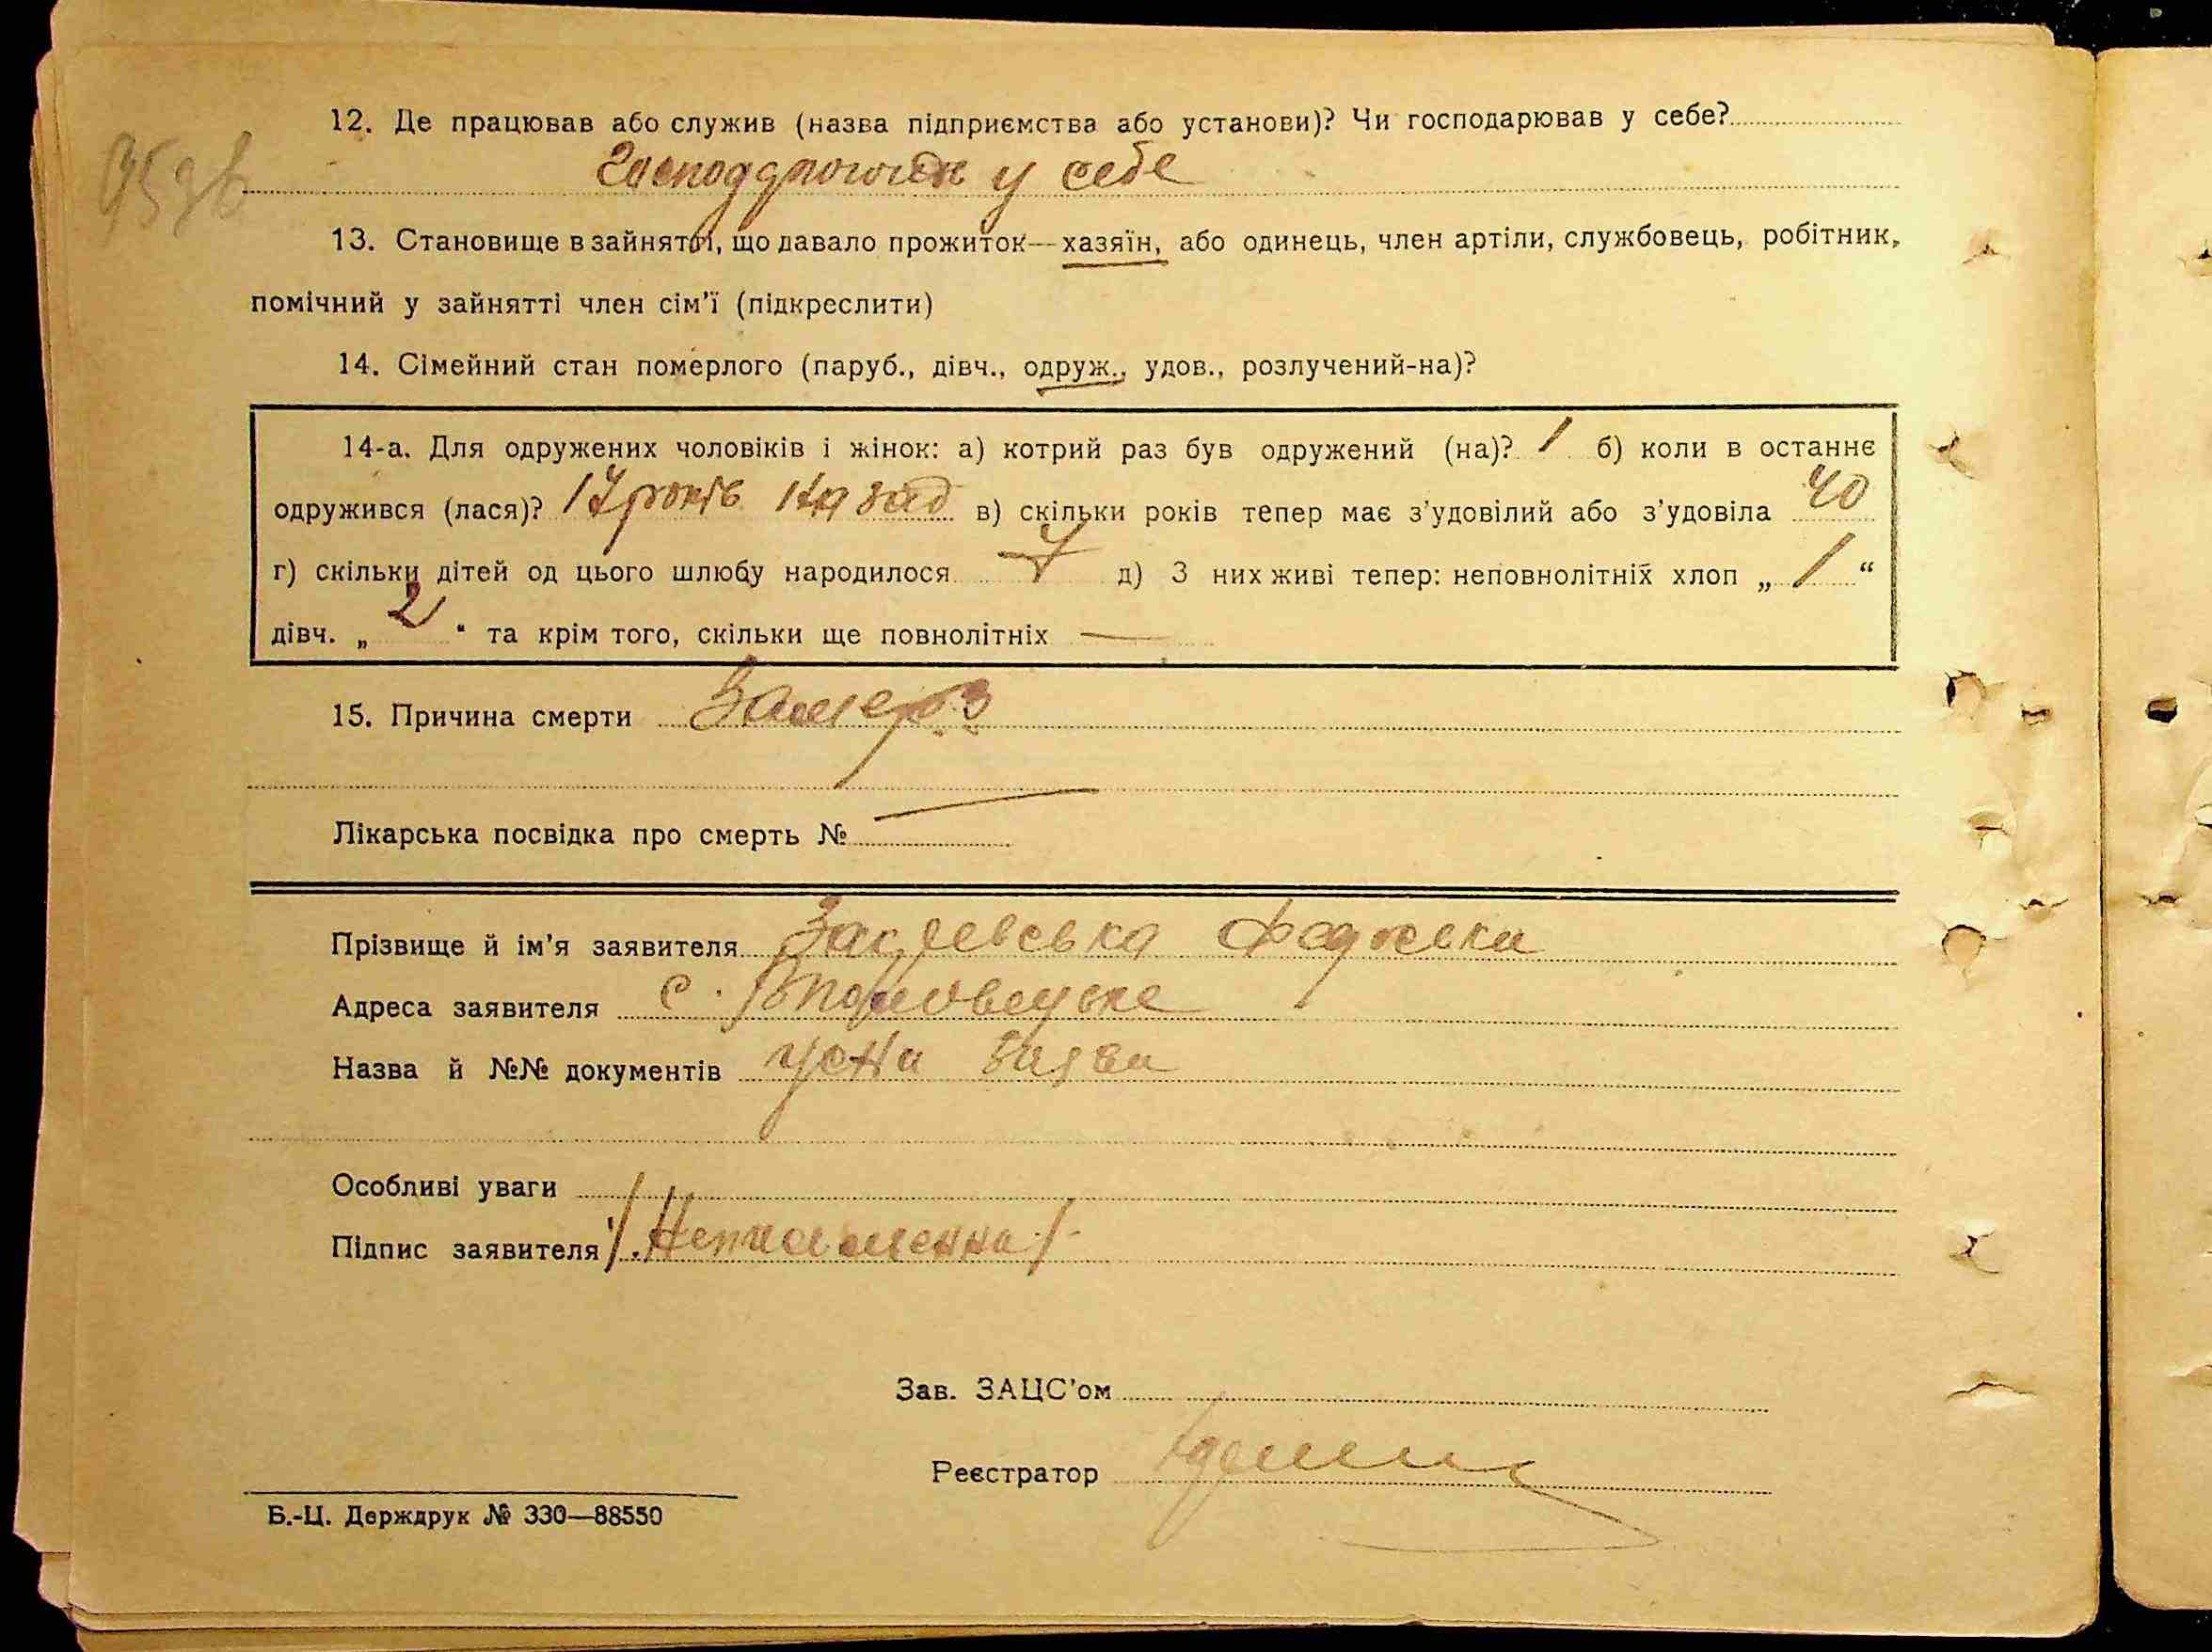 12. Де працював або служив (назва підприємства або установи)? Чи господарював у себе?
95 зв
у себе
13. Становище в зайнятті, що давало прожиток—хазяїн, або одинець, член артіли, службовець, робітник,
помічний у зайнятті член сім'ї (підкреслити)
14. Сімейний стан померлого (паруб., дівч., одруж., удов., розлучений-на)?
14-а. Для одружених чоловіків і жінок: а) котрий раз був одружений (на)? 1 б) коли в останнє
одружився (лася)? 17 років назад в) скільки років тепер має з'удовілий або з'удовіла 40
г) скільки дітей од цього шлюбу народилося 7 д) З них живі тепер: неповнолітніх хлоп „ 1 “
дівч. „ 2 “ та крім того, скільки ще повнолітніх —
15. Причина смерти Замерз
Лікарська посвідка про смерть № —
Прізвище й ім'я заявителя
Адреса заявителя с.
Назва й №№ документів усна заява
Особливі уваги
Підпис заявителя /Неписьменна/
Зав. ЗАЦС'ом
Реєстратор
Б.-Ц. Держдрук № 330—88550